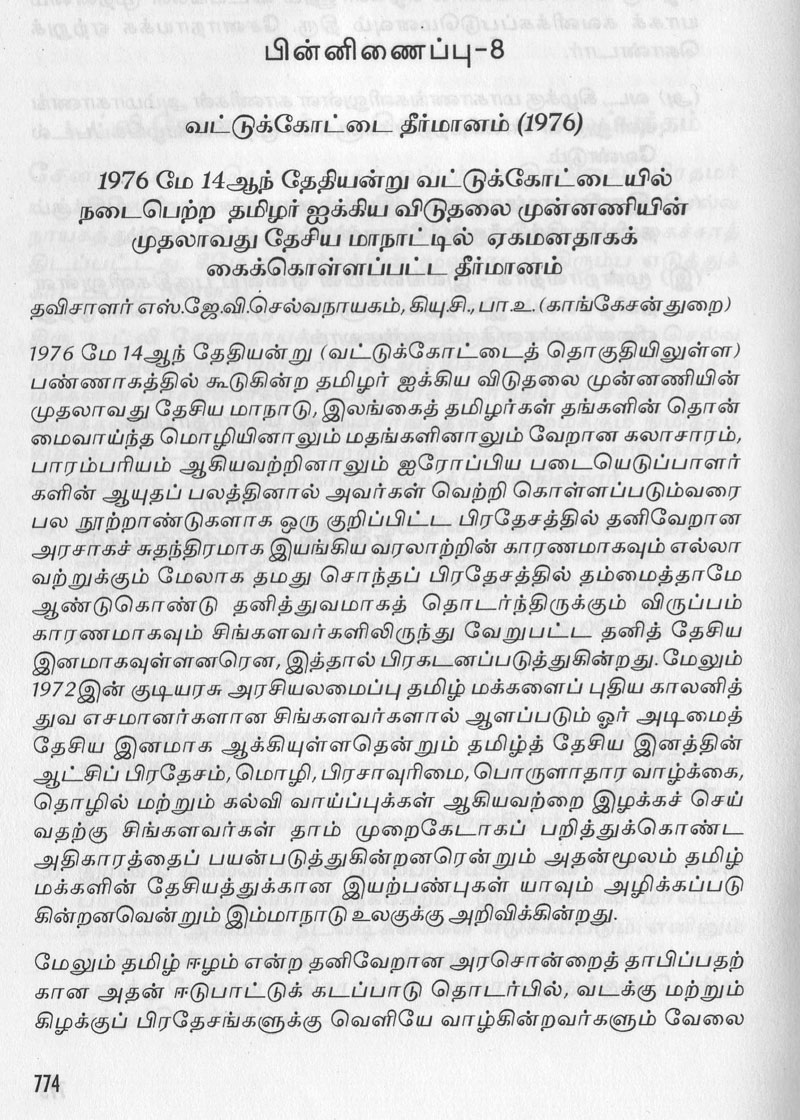 பின்னிணைப்பு-8
வட்டுக்கோட்டை தீர்மானம் (1976)
1976 மே 14ஆந் தேதியன்று வட்டுக்கோட்டையில்
நடைபெற்ற தமிழர் ஐக்கிய விடுதலை முன்னணியின்
முதலாவது தேசிய மாநாட்டில் ஏகமனதாகக்
கைக்கொள்ளப்பட்ட தீர்மானம்
தவிசாளர் எஸ்.ஜே.வி.செல்வநாயகம், கியு.சி., பா.உ. (காங்கேசன்துறை)
1976 மே 14ஆந் தேதியன்று (வட்டுக்கோட்டைத் தொகுதியிலுள்ள)
பண்ணாகத்தில் கூடுகின்ற தமிழர் ஐக்கிய விடுதலை முன்னணியின்
முதலாவது தேசிய மாநாடு, இலங்கைத் தமிழர்கள் தங்களின் தொன்
மைவாய்ந்த மொழியினாலும் மதங்களினாலும் வேறான கலாசாரம்,
பாரம்பரியம் ஆகியவற்றினாலும் ஐரோப்பிய படையெடுப்பாளர்
களின் ஆயுதப் பலத்தினால் அவர்கள் வெற்றி கொள்ளப்படும்வரை
பல நூற்றாண்டுகளாக ஒரு குறிப்பிட்ட பிரதேசத்தில் தனிவேறான
அரசாகச் சுதந்திரமாக இயங்கிய வரலாற்றின் காரணமாகவும் எல்லா
வற்றுக்கும் மேலாக தமது சொந்தப் பிரதேசத்தில் தம்மைத்தாமே
ஆண்டுகொண்டு தனித்துவமாகத் தொடர்ந்திருக்கும் விருப்பம்
காரணமாகவும் சிங்களவர்களிலிருந்து வேறுபட்ட தனித் தேசிய
இனமாகவுள்ளனரென, இத்தால் பிரகடனப்படுத்துகின்றது. மேலும்
1972இன் குடியரசு அரசியலமைப்பு தமிழ் மக்களைப் புதிய காலனித்
துவ எசமானர்களான சிங்களவர்களால் ஆளப்படும் ஓர் அடிமைத்
தேசிய இனமாக ஆக்கியுள்ளதென்றும் தமிழ்த் தேசிய இனத்தின்
ஆட்சிப் பிரதேசம், மொழி, பிரசாவுரிமை, பொருளாதார வாழ்க்கை,
தொழில் மற்றும் கல்வி வாய்ப்புக்கள் ஆகியவற்றை இழக்கச் செய்
வதற்கு சிங்களவர்கள் தாம் முறைகேடாகப் பறித்துக்கொண்ட
அதிகாரத்தைப் பயன்படுத்துகின்றனரென்றும் அதன்மூலம் தமிழ்
மக்களின் தேசியத்துக்கான இயற்பண்புகள் யாவும் அழிக்கப்படு
கின்றனவென்றும் இம்மாநாடு உலகுக்கு அறிவிக்கின்றது.
மேலும் தமிழ் ஈழம் என்ற தனிவேறான அரசொன்றைத் தாபிப்பதற்
கான அதன் ஈடுபாட்டுக் கடப்பாடு தொடர்பில், வடக்கு மற்றும்
கிழக்குப் பிரதேசங்களுக்கு வெளியே வாழ்கின்றவர்களும் வேலை
774